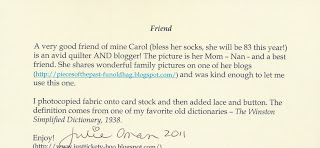 Friend
A very good friend of mine Carol (bless her socks, she will be 83 this year!)
is an avid quilter AND blogger! The picture is her Mom – Nan - and a best
friend. She shares wonderful family pictures on one of her blogs
(http://piecesofthepast-funoldhag.blogspot.com/) and was kind enough to let me
use this one.
I photocopied fabric onto card stock and then added lace and button. The
definition comes from one of my favorite old dictionaries – The Winston
Simplified Dictionary, 1938.
Enjoy! Julie Oman 2011